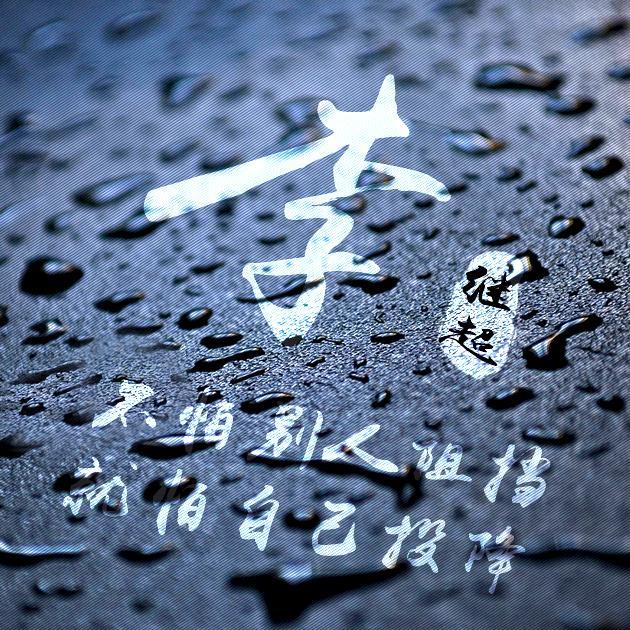 李
继
超
不怕别人阻挡
就怕自己投降